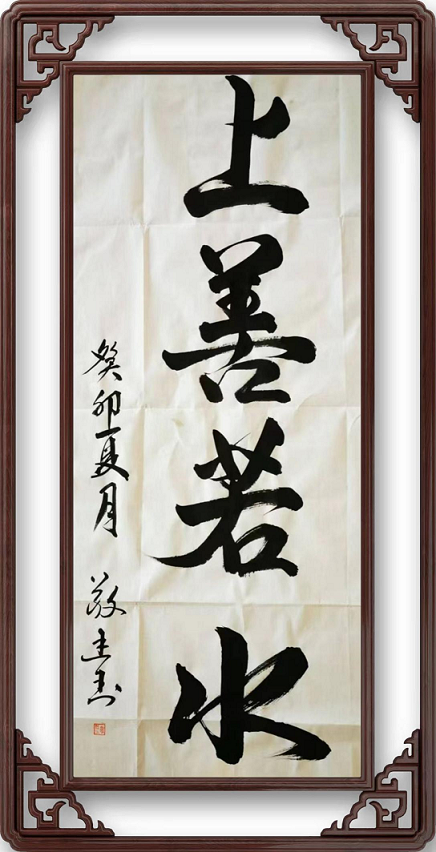 上善若水
癸卯夏月 敬圭书